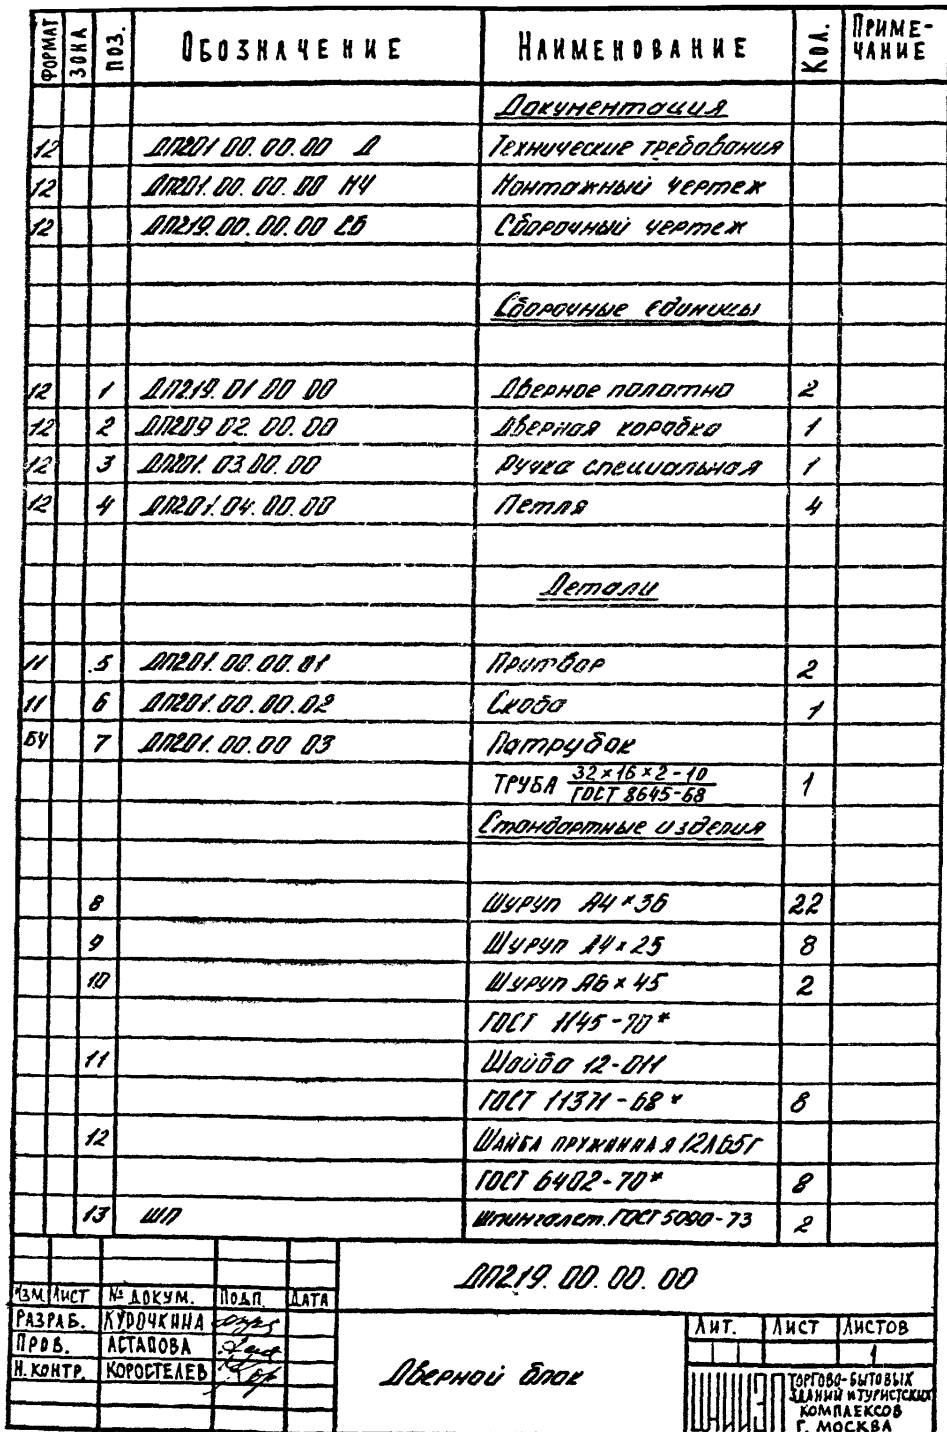 ФОРМАТ ЗОНА ПОЗ. ОБОЗНАЧЕНИЕ НАИМЕНОВАНИЕ КОЛ. ПРИМЕ-
ЧАНИЕ
Документация
12 ДП201.00.00.00 Д Технические требования
12 ДП201.00.00.00 МЧ Монтажный чертеж
12 ДП219.00.00.00 СБ Сборочный чертеж
Сборочные единицы
12 1 ДП219.01.00.00 Дверное полотно 2
12 2 ДП209.02.00.00 Дверная коробка 1
12 3 ДП201.03.00.00 Ручка специальная 1
12 4 ДП201.04.00.00 Петля 4
Детали
11 5 ДП201.00.00.01 Притвор 2
11 6 ДП201.00.00.02 Скоба 1
БЧ 7 ДП201.00.00 03 Патрубок
ТРУБА 32×16×2-10
ГОСТ 8645-68 1
Стандартные изделия
8 Шуруп А4×36 22
9 Шуруп А4×25 8
10 Шуруп А6×45 2
ГОСТ 1145-70*
11 Шайба 12-011
ГОСТ 11371-68* 8
12 ШАЙБА ПРУЖИННАЯ 12Л65Г
ГОСТ 6402-70* 8
13 ШП Шпингалет. ГОСТ 5090-73 2
ДП219.00.00.00
ИЗМ ЛИСТ № ДОКУМ. ПОДП. ДАТА
РАЗРАБ. КУРОЧКИНА
ПРОВ. АСТАПОВА
Н.КОНТР. КОРОСТЕЛЕВ
Дверной блок
ЛИТ. ЛИСТ ЛИСТОВ
1
ЦНИИЭП ТОРГОВО-БЫТОВЫХ
ЗДАНИЙ И ТУРИСТСКИХ
КОМПЛЕКСОВ
Г. МОСКВА